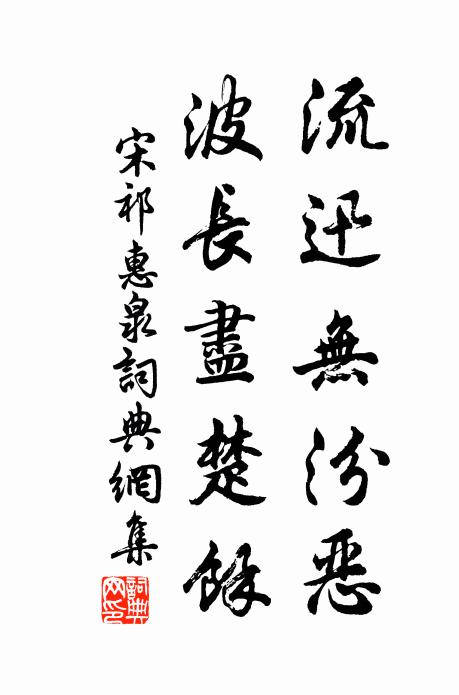 流迅無汾惡
波長盡楚餘
宋祁惠泉詞典網集
詞典
网印